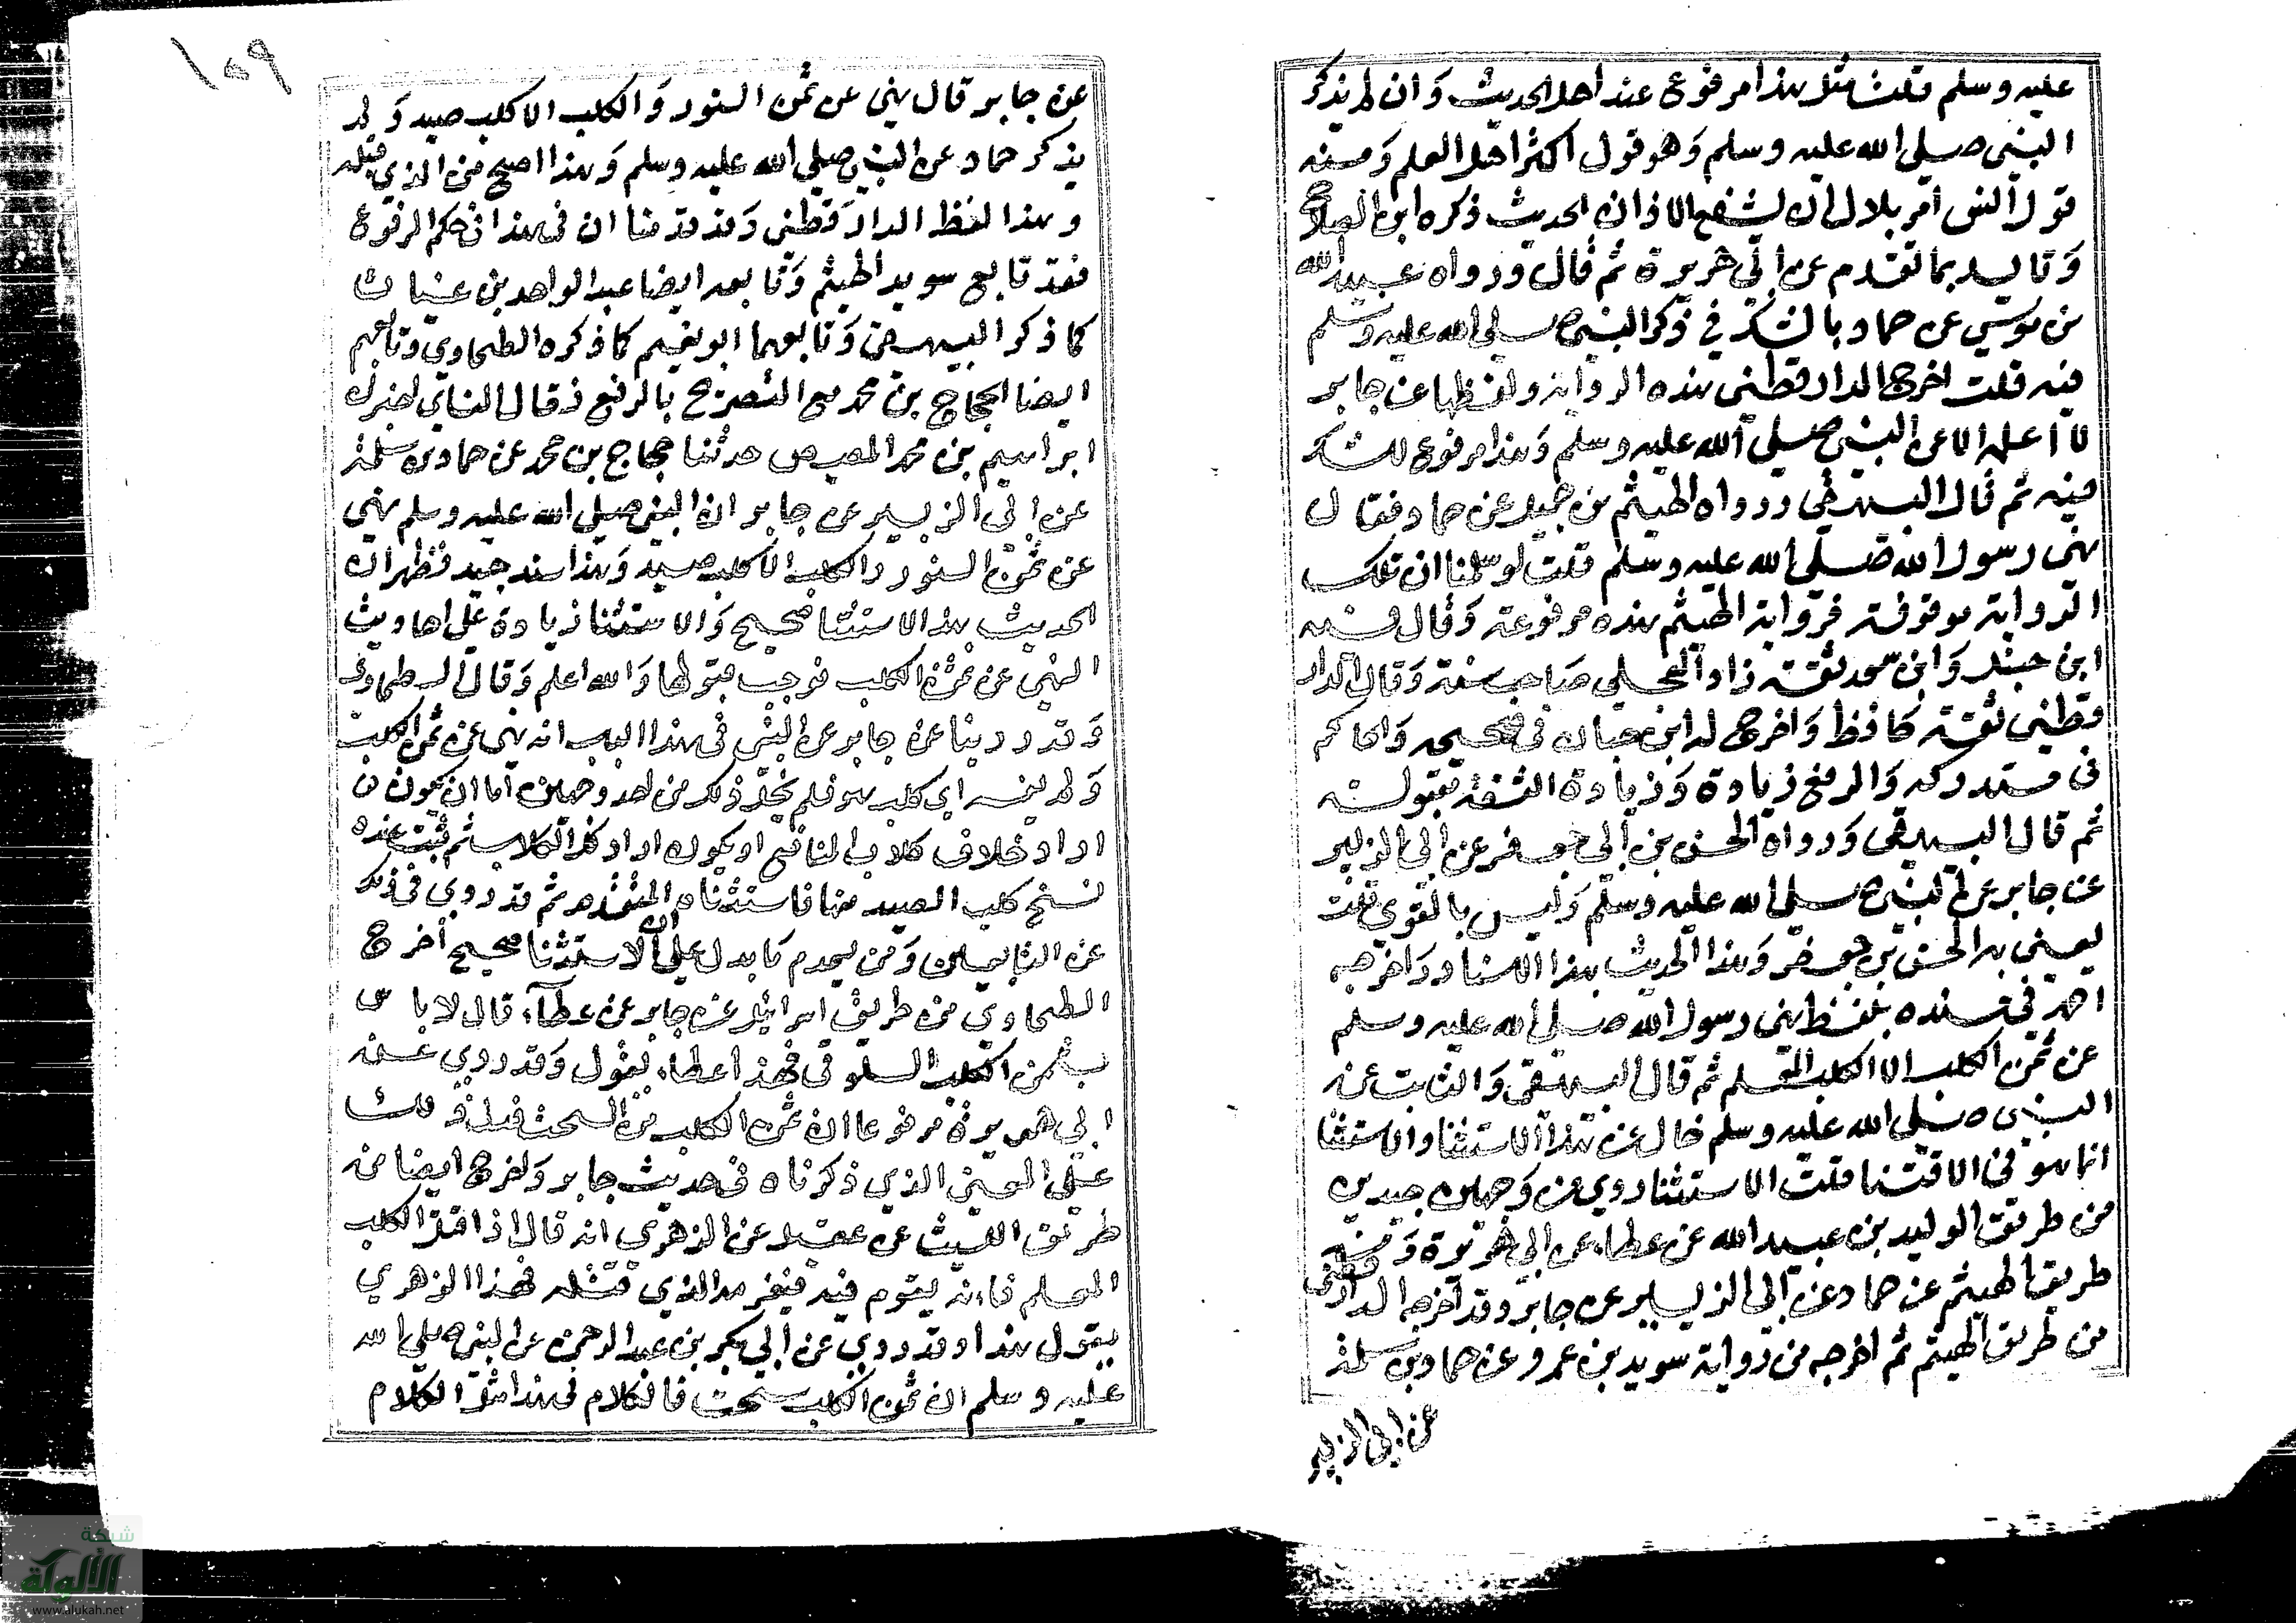 عليه وسلم قلت مثل هذا مرفوع عند اهل الحديث وان لم يذكر
النبي صلى الله عليه وسلم وهو قول اكثر اهل العلم ومنه
قول انس امر بلال ان يشفع الاذان الحديث ذكره ابن الصلاح
بما تقدم عن ابي هريرة ثم قال ورواه عبيد الله
بن موسي عن حماد بالشك في ذكر النبي صلى الله عليه وسلم
فيه قلت اخرج الدارقطني هذه الرواية ولفظها عن جابر
لا اعلم الا عن النبي صلى الله عليه وسلم وهذا مرفوع للشك
فيه ثم قال البيهقي ورواه الهيثم بن جميل عن حماد فقال
نهى رسول الله صلى الله عليه وسلم قلت لو سلمنا ان تلك
الرواية موقوفة فرواية الهيثم هذه مرفوعة وقال فيه
ابن حنبل وابن سعد ثقة زاد العجلي صاحب سنة وقال الدار
قطني ثقة حافظ واخرج له ابن حبان في صحيحه والحاكم
في مستدركه والرفع زيادة وزيادة الثقة مقبولة
ثم قال البيهقي ورواه الحسن بن ابي جعفر عن ابي الزبير
عن جابر عن النبي صلى الله عليه وسلم وليس بالقوي قلت
يعني به الحسن بن جعفر وهذا الحديث بهذا الاسناد واخرجه
احمد في مسنده بلفظ نهى رسول الله صلى الله عليه وسلم
عن ثمن الكلب الا الكلب المعلم ثم قال البيهقي والثابت عن
النبي صلى الله عليه وسلم خال عن هذا الاستثنا والاستثنا
انما هو في الاقتنا قلت الاستثنا روي عن وجهين جيدين
من طريق الوليد بن عبيد الله عن عطاء عن ابي هريرة ومن
طريق الهيثم عن حماد عن ابي الزبير عن جابر وقد اخرجه الدارقطني
من طريق الهيثم ثم اخرجه من رواية سويد بن عمرو عن حماد بن سلمة
عن ابي الزبير
١٥٩
عن جابر قال نهي عن ثمن السنور والكلب الا كلب صيد ولم
يذكر حماد عن النبي صلى الله عليه وسلم وهذا اصح من الذي قبله
وهذا لفظ الدارقطني وقد قدمنا ان في هذا في حكم المرفوع
فقد تابع سويد الهيثم وتابعه ايضا عبد الواحد بن غياث
كما ذكر البيهقي وتابعهما ابو نعيم كما ذكره الطحاوي وتابعهم
ايضا الحجاج بن محمد مع التصريح بالرفع فقال النسائي اخبرني
ابراهيم بن محمد المصيصي حدثنا حجاج بن محمد عن حماد بن سلمة
عن ابي الزبير عن جابر ان النبي صلى الله عليه وسلم نهى
عن ثمن السنور والكلب الا كلب صيد وهذا سند جيد فظهر ان
الحديث بهذا الاستثنا صحيح والاستثنا زيادة على احاديث
النهي عن ثمن الكلب فوجب قبولها والله اعلم وقال الطحاوي
وقد روينا عن جابر عن النبي في هذا الباب انه نهى عن ثمن الكلب
ولم يفسر اي كلب هو فلم يخل ذلك من احد وجهين اما ان يكون
اراد خلاف كلاب المنافع او يكون اراد كل الكلاب ثم ثبت عنده
نسخ كلب الصيد منها فاستثناه المتقدم ثم قد روي في ذلك
عن التابعين ومن بعدهم ما يدل على ان الاستثنا صحيح اخرج
الطحاوي من طريق اسرائيل عن جابر عن عطاء قال لا باس
بثمن الكلب السلوقي فهذا عطاء يقول وقد روي عن
ابي هريرة مرفوعا ان ثمن الكلب من السحت فدل ذلك
على المعنى الذي ذكرناه في حديث جابر واخرج ايضا من
طريق الليث عن عقيل عن الزهري انه قال اذا قتل الكلب
المعلم فانه يقوم فيغرمه الذي قتله فهذا الزهري
يقول هذا وقد روي عن ابي بكر بن عبد الرحمن عن النبي صلى الله
عليه وسلم ان ثمن الكلب سحت فالكلام في هذا مثل الكلام
شبكة
الألوكة
www.alukah.net